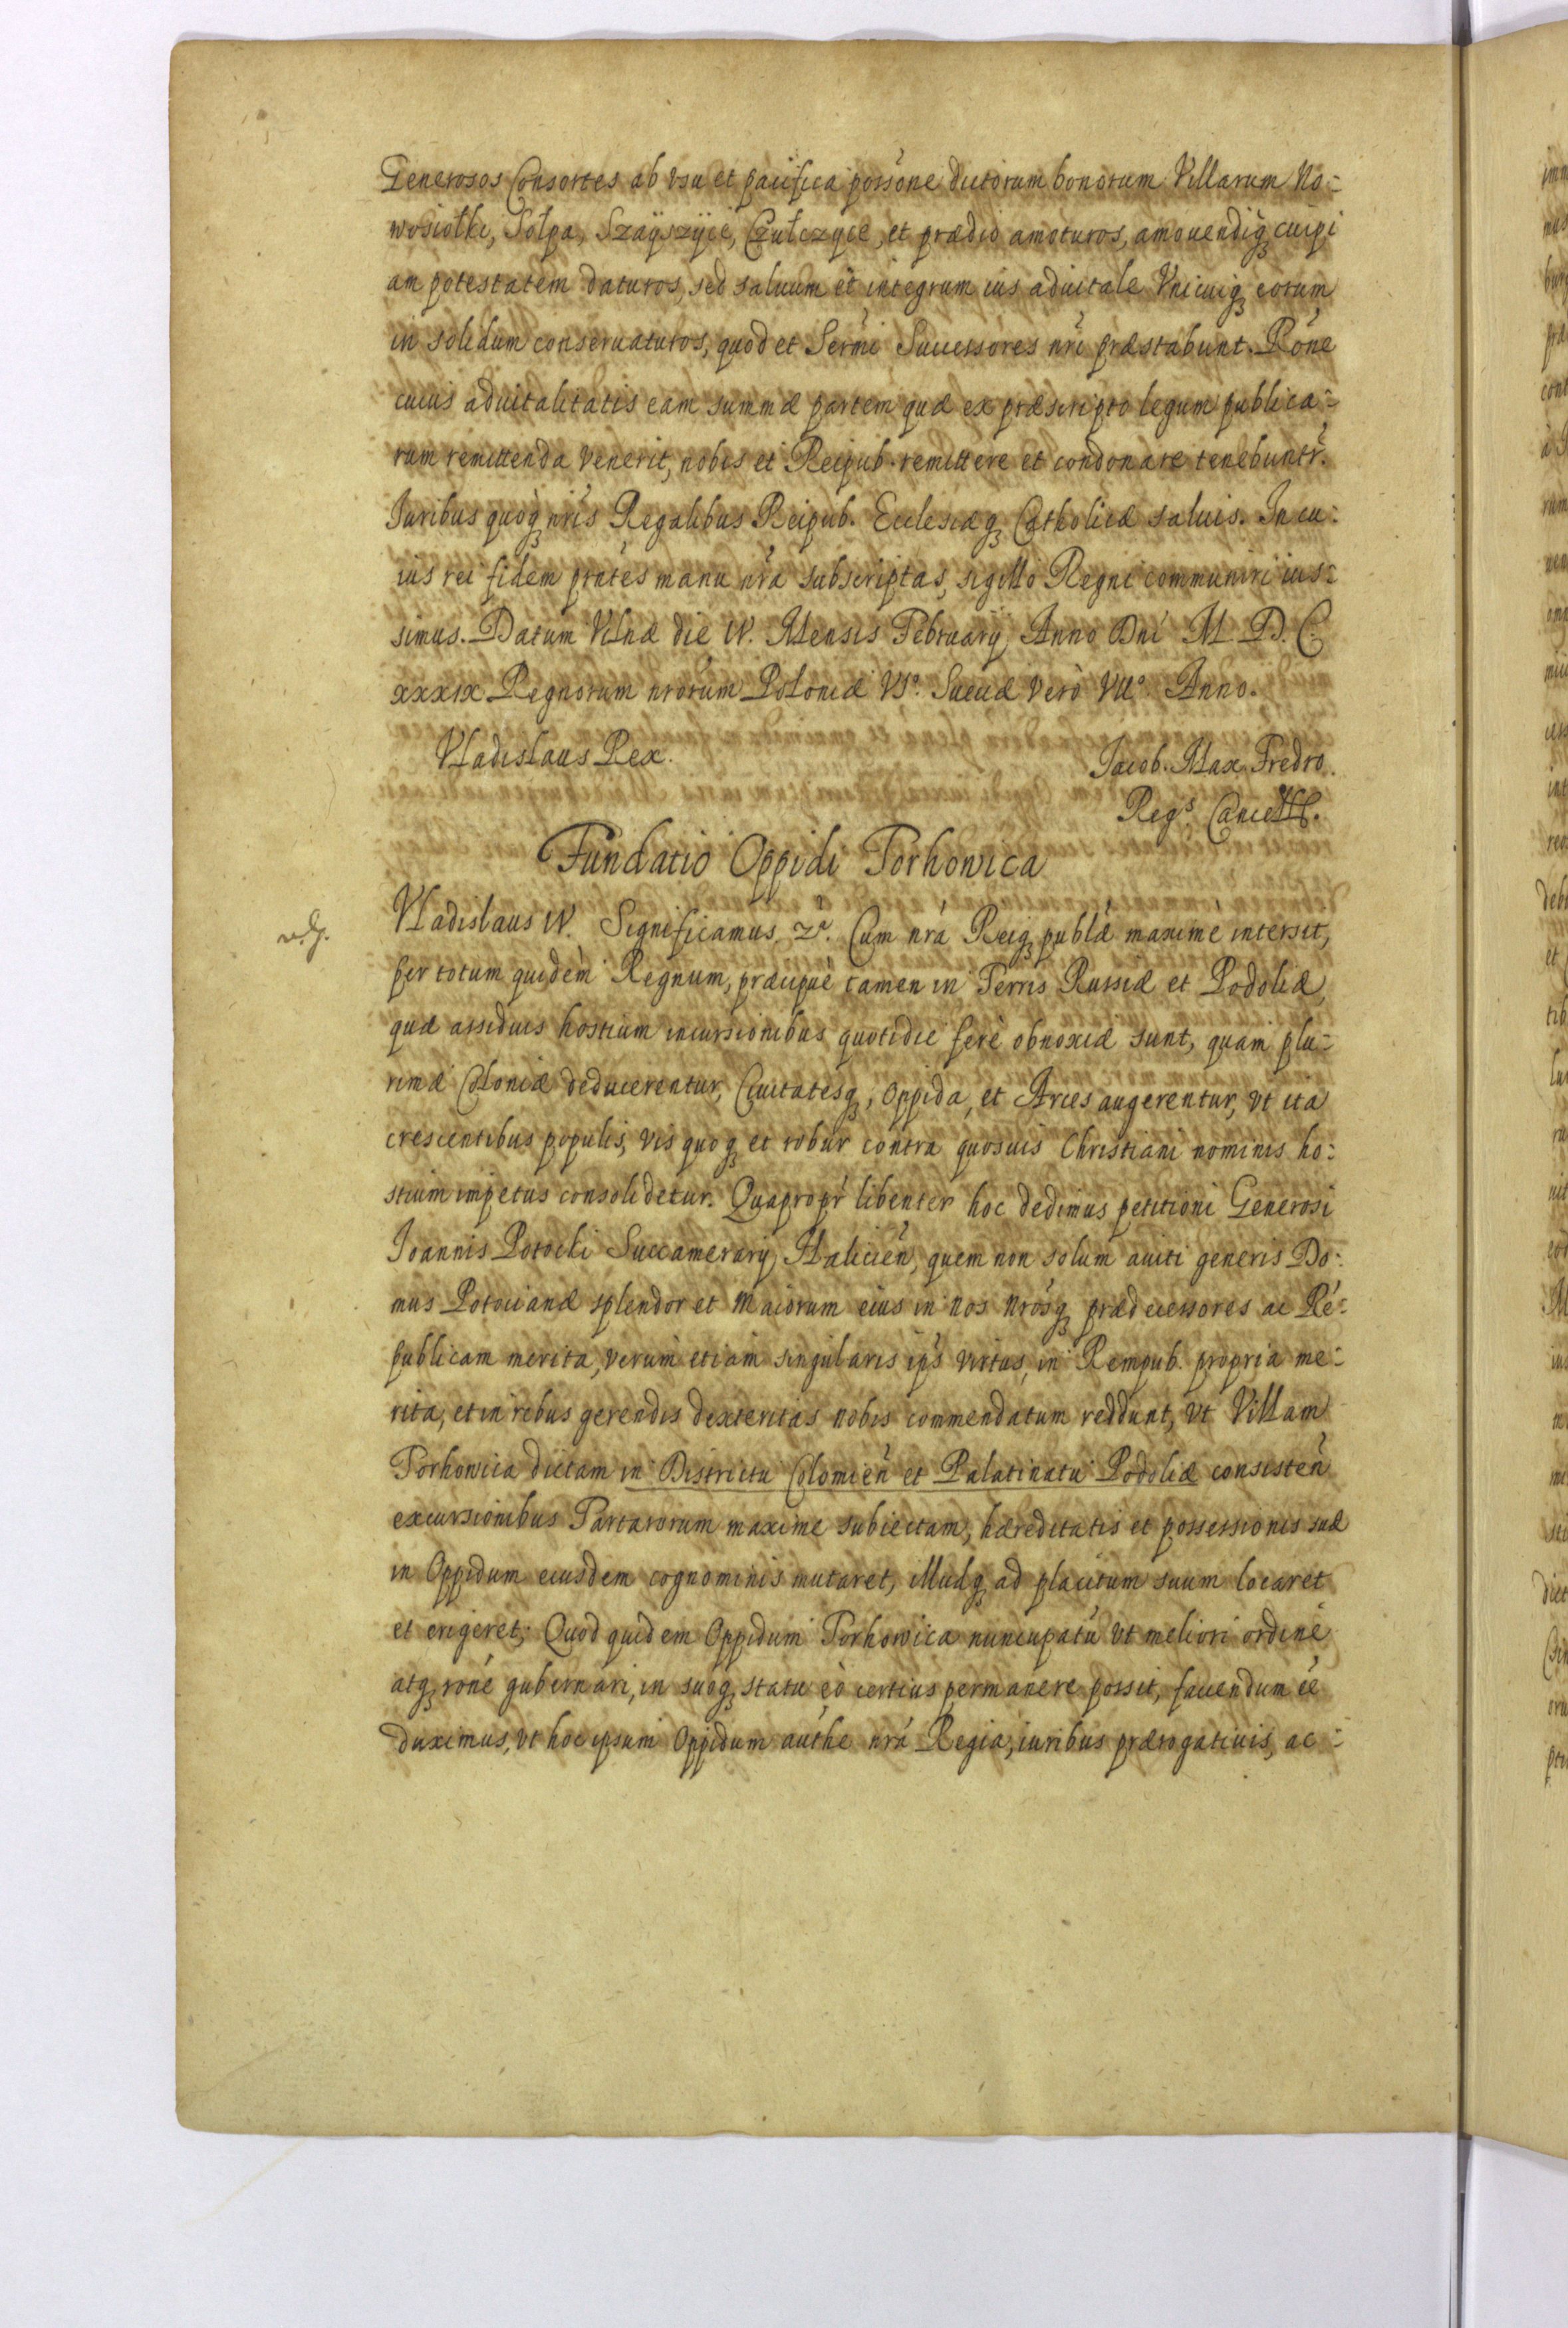 Generosos Consortes ab vsu et pacifica possone dictorum bonorum Villarum No⸗
wosiołki, Sołpa, Szaÿszÿcé, Czułczÿce, et prædio amoturos, amouendiq cuipi
am potestatem daturos, sed saluum et integrum ius aduitale Vnicuiq eorum
in solidum conseruaturos, quod et Sermi Successores nri præstabunt. Rone
cuius aduitalitatis eam summæ partem quæ ex præscripto legum publica⸗
rum remittenda venerit, nobis et Reipub. remittere et condonare tenebuntr.
Iuribus quoq nris Regalibus Reipub. Ecclesiæq Catholicæ saluis. In cu⸗
ius rei fidem pntes manu nra subscriptas, sigillo Regni communiri ius⸗
simus. Datum Vilnæ die IV. Mensis Februarij Anno Dni M. D. C.
xxxix Regnorum nrorum Poloniæ VIº. Sueciæ verò VIIº. Anno.
Vladislaus Rex.
Jacob. Max. Fredro.
Regs Cancell.
Fundatio Oppidi Torhowica
Vladislaus IV. Significamus. Za. Cum nrá Reiq publæ maximè intersit,
per totum quidèm Regnum, præcipuè tamen in Terris Russiæ et Podoliæ,
quæ assiduis hostium incursionibus quotidie ferè obnoxiæ sunt, quam plu⸗
rimæ Coloniæ deducerentur, Ciuitatesq, oppida, et Arces augerentur, vt ita
crescentibus populis, vis quoq et robur contra quosuis Christiani nominis ho⸗
stium impetus consolidetur. Quapropr libenter hoc dedimus petitioni Generosi
Ioannis Potocki Succamerarij Halicien, quem non solum auiti generis Do⸗
mus Potocianæ splendor et Maiorum eius in nos nrosq prædecessores ac Re⸗
publicam merita, verum etiam singularis ips virtus, in Rempub. propria me⸗
rita, et in rebus gerendis dexteritas nobis commendatum reddunt, vt Villam
Torhowica dictam in Districtu Colomien et Palatinatu Podoliæ consisten
excursionibus Tartarorum maxime subiectam, hæreditatis et possessionis suæ
in Oppidum eiusdem cognominis mutaret, illudq ad placitum suum locaret
et erigeret; Quod quidem Oppidum Torhowica nuncupatu vt meliori ordine
atq rone gubernari, in suoq statu eò certius permanere possit, fauendum ee
duximus, vt hoc ipsum Oppidum authe nrá Regia, iuribus prærogatiuis, ac⸗